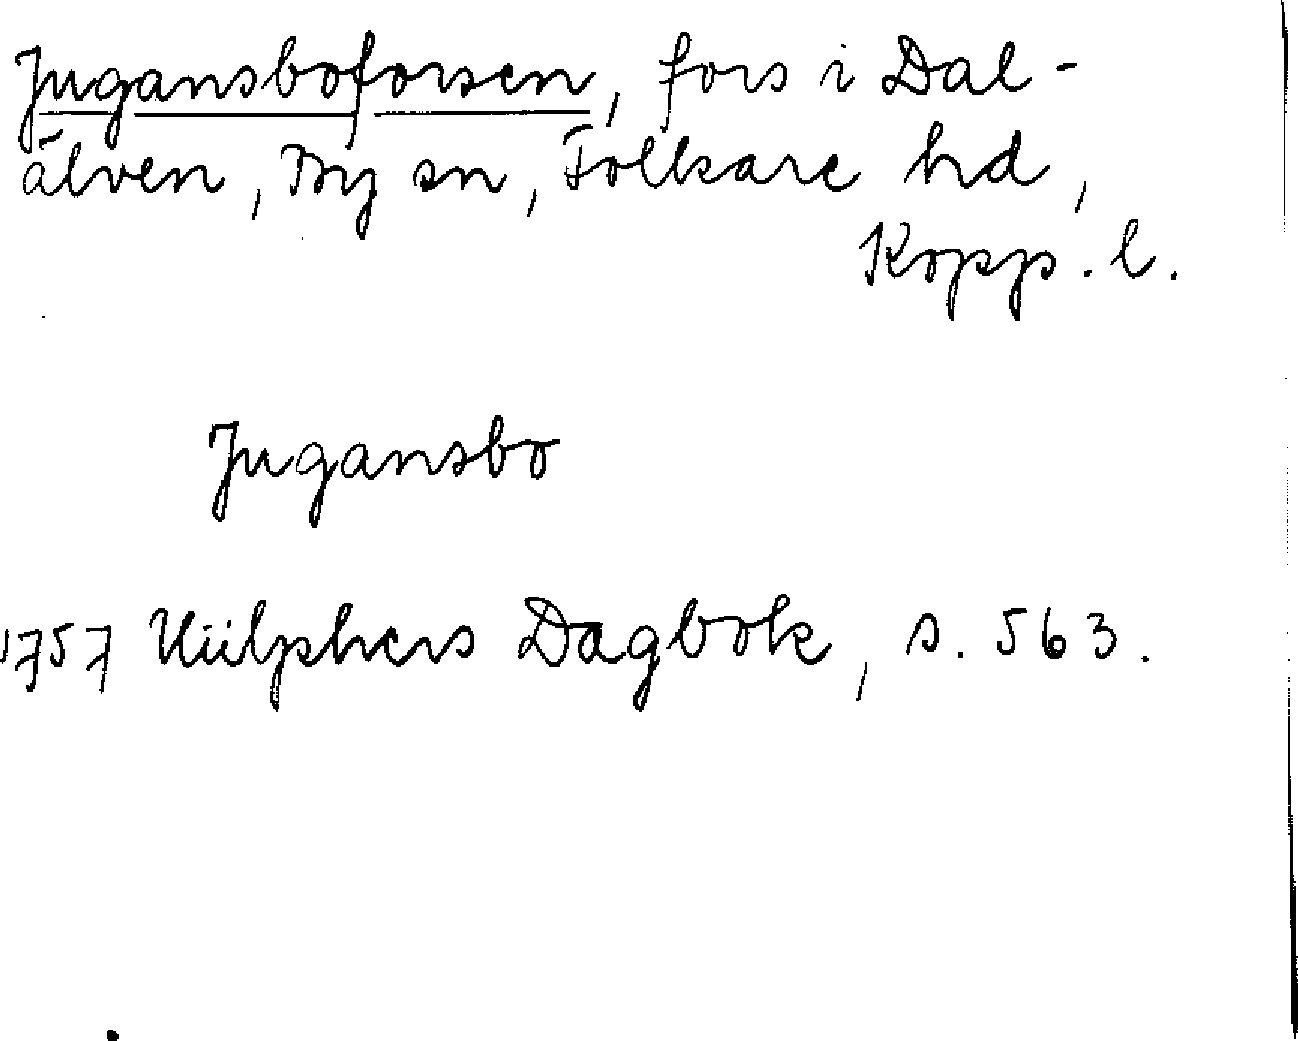 Jugansboforsen, fors i Dal-
älven, By sn, Folkare hd,
Kopp. l.
Jugansbo
1757 Hülphers Dagbok, s. 563.